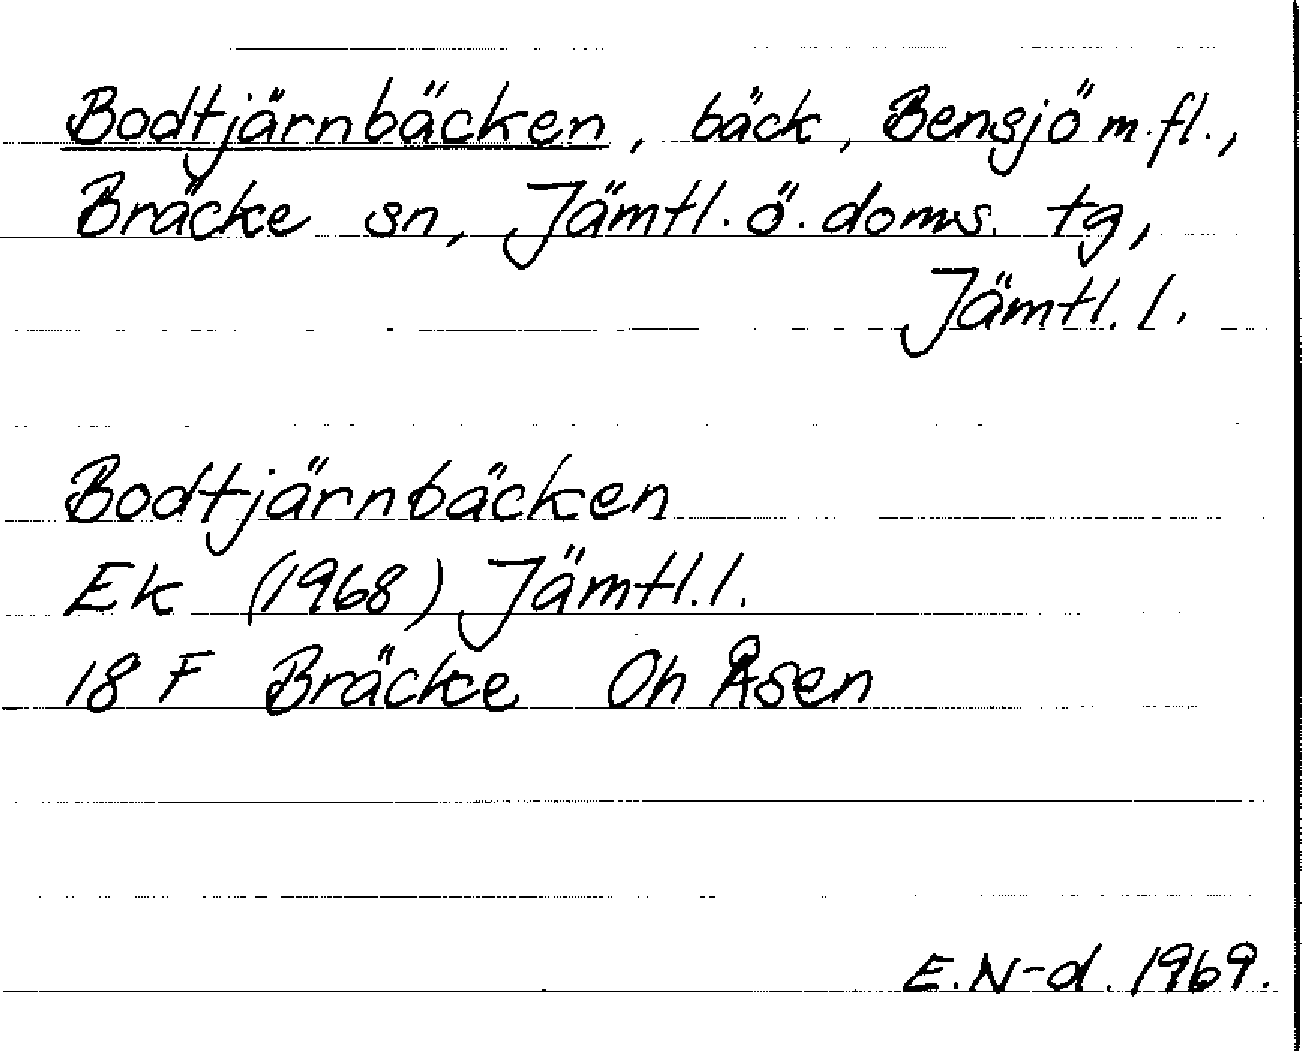 Bodtjärnbäcken, bäck, Bensjö m.fl.,
Bräcke sn, Jämtl. ö. doms. tg,
Jämtl. l.
Bodtjärnbäcken
Ek (1968) Jämtl. l.
18 F Bräcke Oh Åsen
E. N-d. 1969.